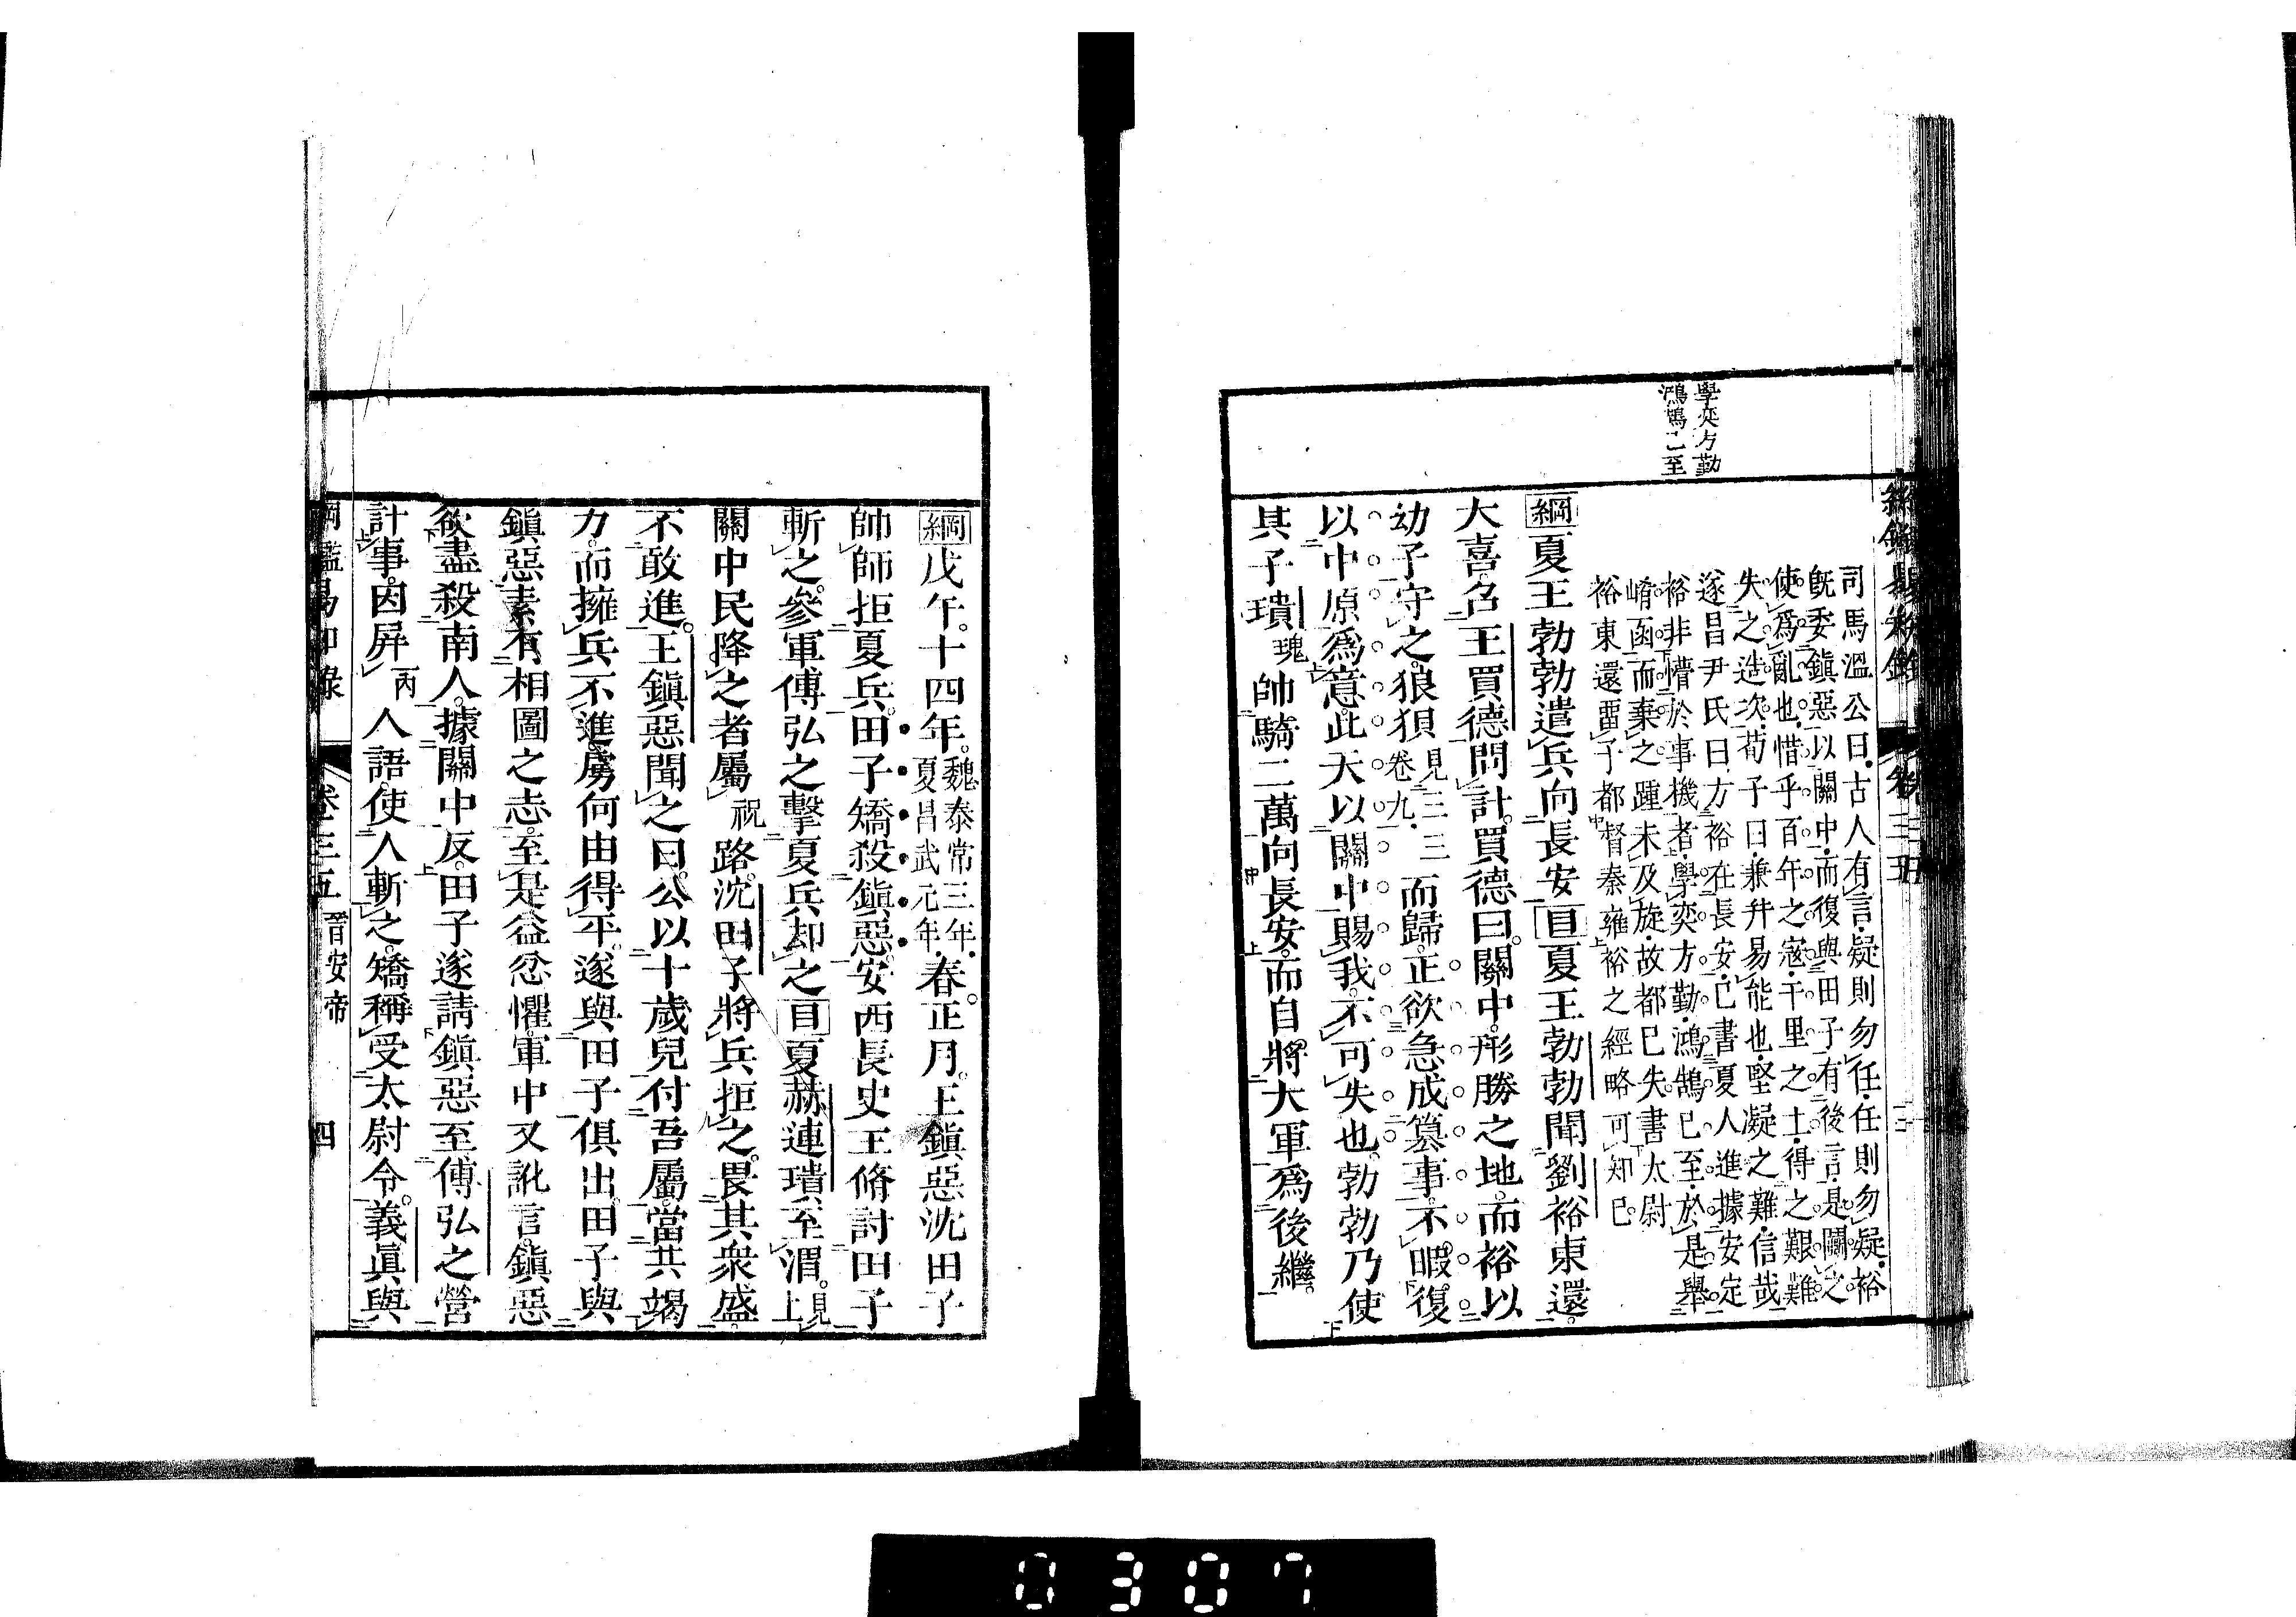 學奕方勤
鴻鵠已至
司馬溫公曰古人有言疑則勿任任則勿疑裕
既委鎮惡以關中而復與田子有後言是鬬之
使爲亂也惜乎百年之寇千里之土得之艱難
失之造次荀子曰兼幷易能也堅凝之難信哉
遂昌尹氏曰方裕在長安已書夏人進據安定
裕非懵於事機者學奕方勤鴻鵠已至於是舉
崤函而棄之踵未及旋故都已失書太尉
裕東還畱子都督秦雍裕之經略可知已
綱夏王勃勃遣兵向長安目夏王勃勃聞劉裕東還
大喜召王買德問計買德曰關中形勝之地而裕以
幼子守之狼狽見三三卷九而歸正欲急成篡事不暇復
以中原爲意此天以關中賜我不可失也勃勃乃使
其子璝瑰帥騎二萬向長安而自將大軍爲後繼
綱戊午十四年魏泰常三年夏昌武元年春正月王鎮惡沈田子
帥師拒夏兵田子矯殺鎮惡安西長史王脩討田子
斬之參軍傅弘之擊夏兵却之目夏赫連璝至渭見上
關中民降之者屬祝路沈田子將兵拒之畏其衆盛
不敢進王鎮惡聞之曰公以十歲兒付吾屬當共竭
力而擁兵不進虜何由得平遂與田子俱出田子與
鎮惡素有相圖之志至是益忿懼軍中又訛言鎮惡
欲盡殺南人據關中反田子遂請鎮惡至傅弘之營
計事因屛丙人語使人斬之矯稱受太尉令義眞與
綱鑑易知錄 卷三五 晉安帝 四
0307